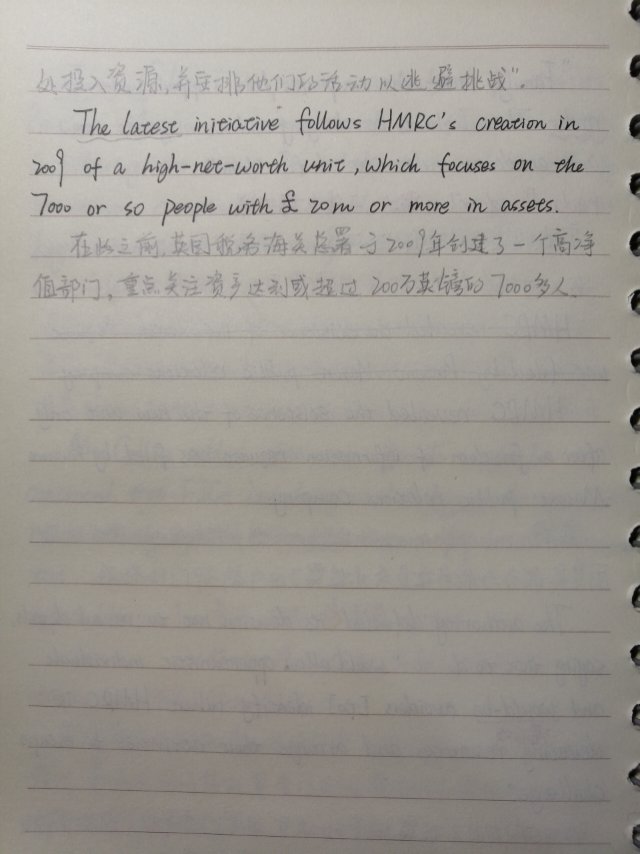 处投入资源,并安排他们的活动以逃避挑战”.
The latest initiative follows HMRC's creation in
2009 of a high-net-worth unit, which focuses on the
7000 or so people with £ 20m or more in assets.
在此之前,英国税务海关总署于2009年创建了一个高净
值部门,重点关注资产达到或超过200万英镑的7000多人.